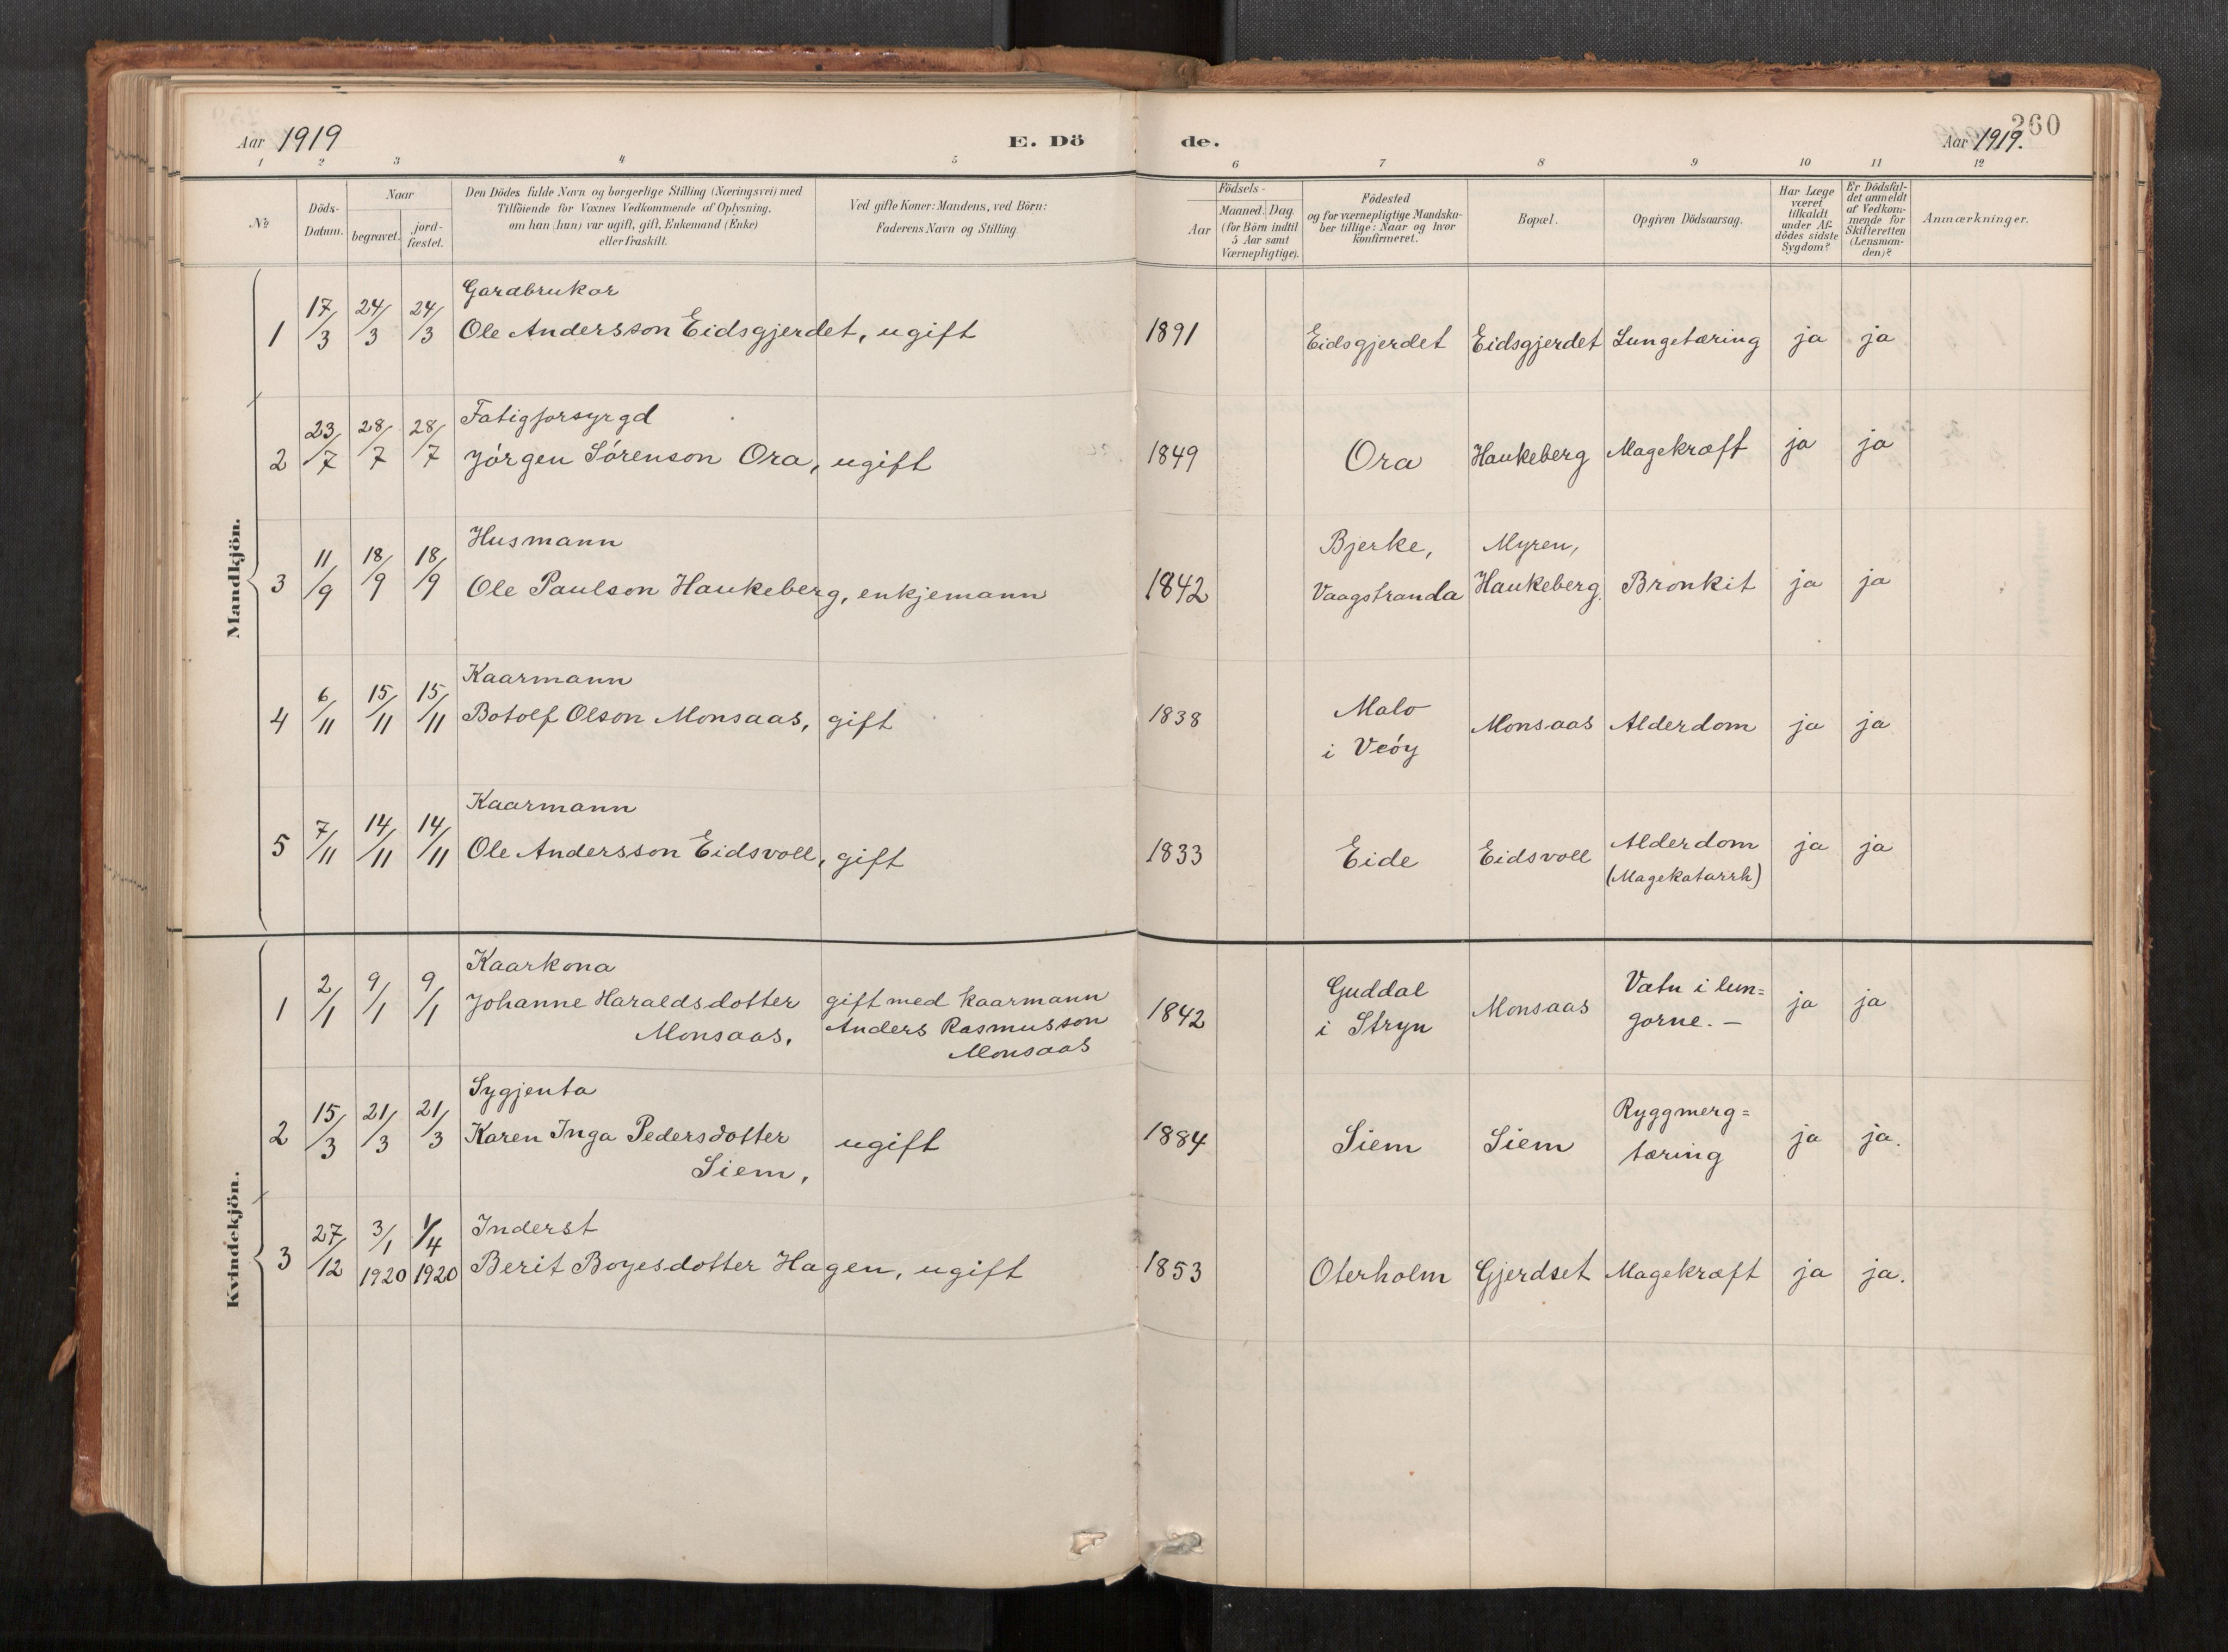 Aar 1919
E. Dö
de.
Aar 1919.
260
1 2 3 4 5 6 7 8 9 10 11 12
No
Döds-
Datum.
Naar
begravet.
jord-
fæstet.
Den Dödes fulde Navn og borgerlige Stilling (Næringsvei) med
Tilföiende for Voxnes Vedkommende af Oplysning,
om han (hun) var ugift, gift, Enkemand (Enke)
eller fraskilt.
Ved gifte Koner: Mandens, ved Börn:
Faderens Navn og Stilling.
Födsels-
Aar
Maaned. Dag
(for Börn indtil
5 Aar samt
Værnepligtige).
Födested
og for værnepligtige Mandska-
ber tillige: Naar og hvor
konfirmeret.
Bopæl.
Opgiven Dödsaarsag.
Har Læge
været
tilkaldt
under Af-
dödes sidste
Sygdom?
Er Dödsfal-
det anmeldt
af Vedkom-
mende for
Skifteretten
(Lensman-
den)?
Anmærkninger.
Mandkjön.
Gardbrukar
1 17/3 24/3 24/3 Ole Andersson Eidsgjerdet, ugift 1891 Eidsgjerdet Eidsgjerdet Lungetæring ja ja
Fatigforsyrgd
2 23/7 28/7 28/7 Jórgen Sórenson Ora, ugift 1849 Ora Haukeberg Magekræft ja ja
Husmann Bjerke, Myren,
3 11/9 18/9 18/9 Ole Paulson Haukeberg, enkjemann 1842 Vaagstranda Haukeberg. Bronkit ja ja
Kaarmann Malo
4 6/11 15/11 15/11 Botolf Olson Monsaas, gift 1838 i Veóy Monsaas Alderdom ja ja
Kaarmann
5 7/11 14/11 14/11 Ole Andersson Eidsvoll, gift 1833 Eide Eidsvoll Alderdom ja ja
(Magekatarrh)
Kvindekjön.
Kaarkona Guddal Vatn i lun=
1 2/1 9/1 9/1 Johanne Haraldsdotter gift med kaarmann 1842 i Stryn Monsaas gorne. — ja ja
Monsaas, Anders Rasmusson
Monsaas
Sygjenta Ryggmerg=
2 15/3 21/3 21/3 Karen Inga Pedersdotter ugift 1884 Siem Siem tæring ja ja.
Siem,
Inderst
3 27/12 3/1 1920 1/4 1920 Berit Boyesdotter Hagen, ugift 1853 Oterholm Gjerdset Magekræft ja ja.